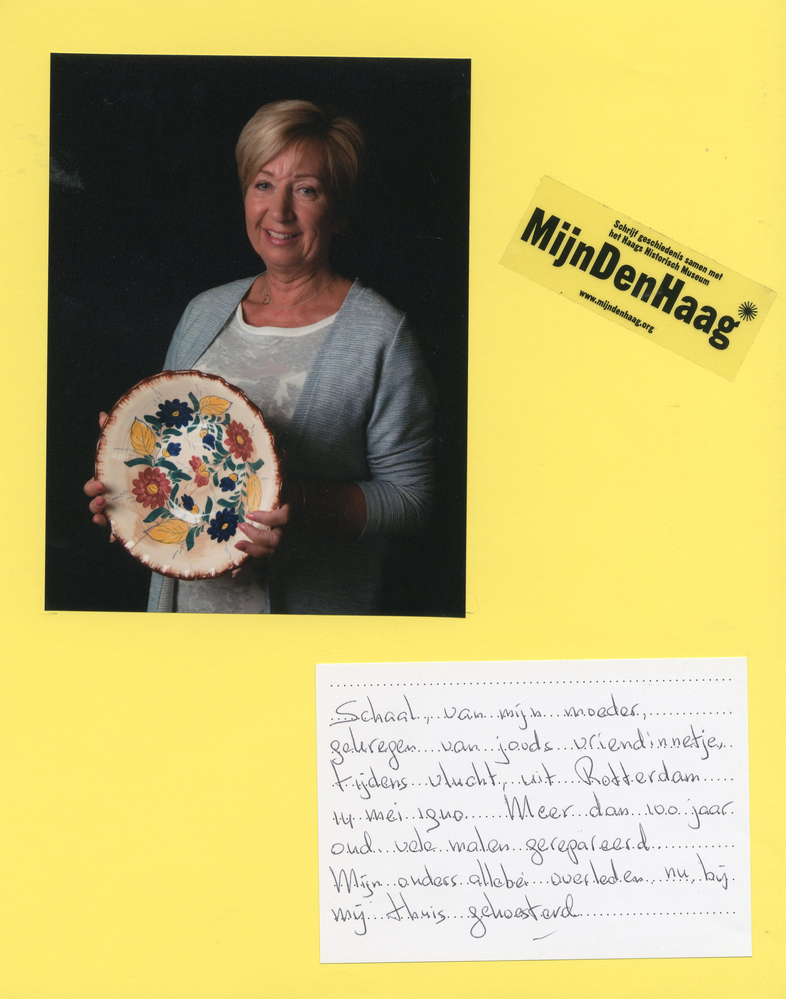 Schrijf geschiedenis samen met
het Haags Historisch Museum
MijnDenHaag
www.mijndenhaag.org
Schaal, van mijn moeder,
gekregen van joods vriendinnetje,
tijdens vlucht, uit Rotterdam
14 mei 1940. Meer dan 100 jaar
oud vele malen gerepareerd.
Mijn ouders allebei overleden, nu, bij
mij thuis gekoesterd